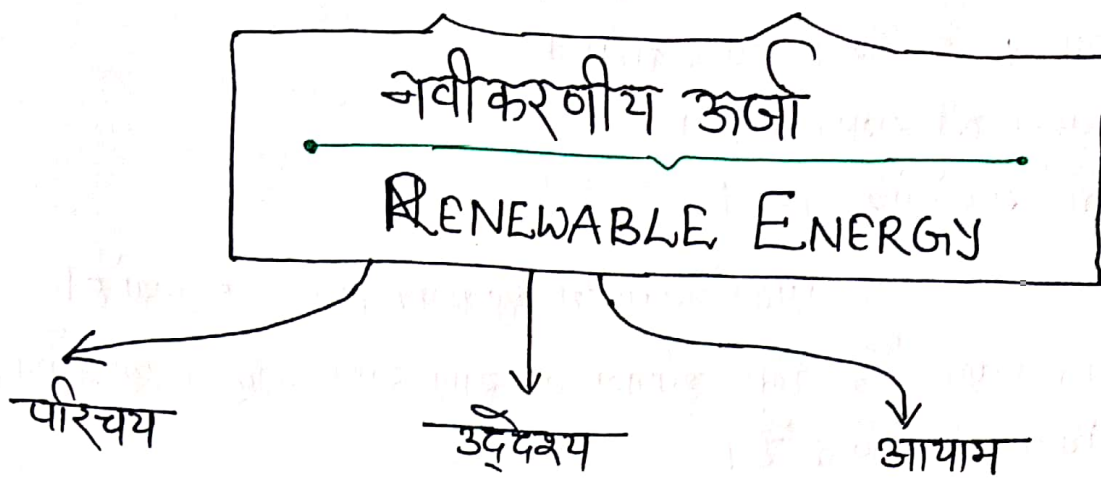 नवीकरणीय ऊर्जा
RENEWABLE ENERGY
परिचय
उद्देश्य
आयाम